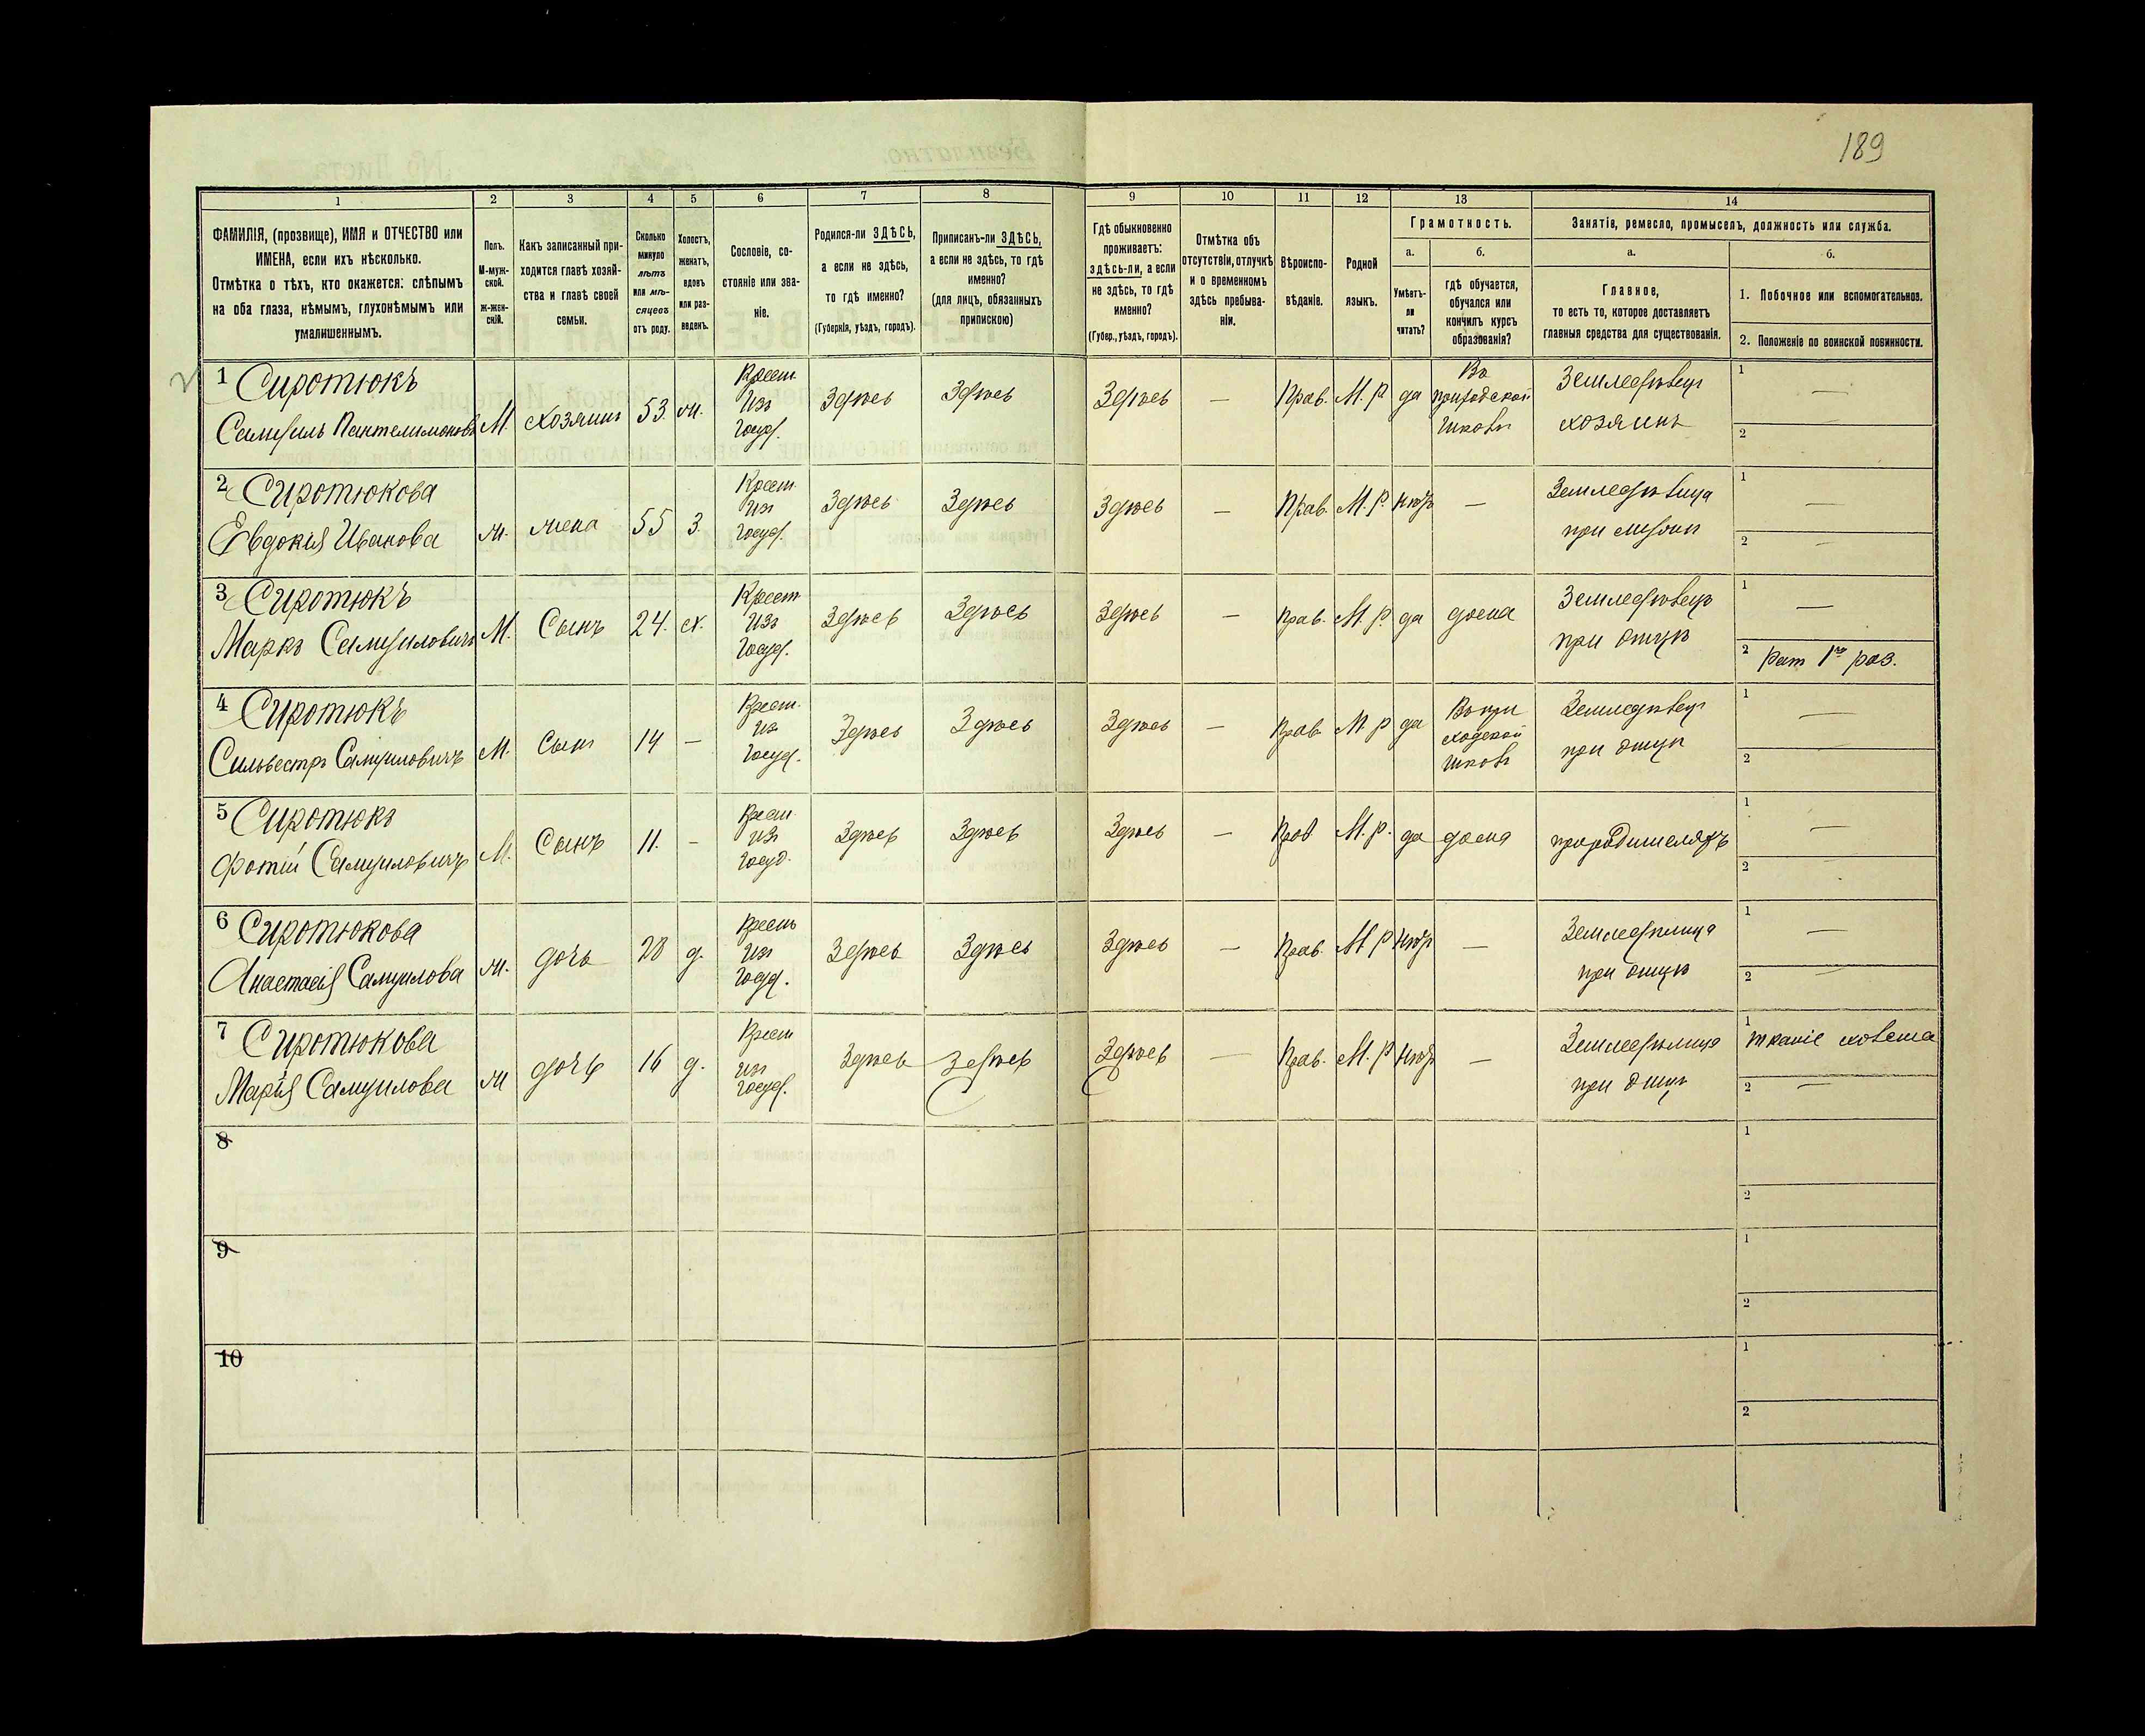 189
1 2 3 4 5 6 7 8 9 10 11 12 13 14
ФАМИЛІЯ, (прозвище), ИМЯ и ОТЧЕСТВО или
ИМЕНА, если ихъ нѣсколько.
Отмѣтка о тѣхъ, кто окажется: слѣпымъ
на оба глаза, нѣмымъ, глухонѣмымъ или
умалишеннымъ.
Полъ.
М-муж-
ской.
ж-жен-
скій.
Какъ записанный при-
ходится главѣ хозяй-
ства и главѣ своей
семьи.
Сколько
минуло
лѣтъ
или мѣ-
сяцевъ
отъ роду.
Холостъ,
женатъ,
вдовъ
или раз-
веденъ.
Сословіе, со-
стояніе или зва-
ніе.
Родился-ли ЗДѢСЬ,
а если не здѣсь,
то гдѣ именно?
(Губернія, уѣздъ, городъ).
Приписанъ-ли ЗДѢСЬ,
а если не здѣсь, то гдѣ
именно?
(для лицъ, обязанныхъ
припискою)
Гдѣ обыкновенно
проживаетъ:
здѣсь-ли, а если
не здѣсь, то гдѣ
именно?
(Губер., уѣздъ, городъ).
Отмѣтка объ
отсутствіи, отлучкѣ
и о временномъ
здѣсь пребыва-
ніи.
Вѣроиспо-
вѣданіе.
Родной
языкъ.
Грамотность.
а. б.
Умѣетъ-
ли
читать?
гдѣ обучается,
обучался или
кончилъ курсъ
образованія?
Занятіе, ремесло, промыселъ, должность или служба.
а. б.
Главное,
то есть то, которое доставляетъ
главныя средства для существованія.
1. Побочное или вспомогательное.
2. Положеніе по воинской повинности.
1 Сиротюкъ
Самуилъ Пантелимоновъ М. хозяинъ 53 ж. Крест. изъ госуд. Здѣсь Здѣсь Здѣсь — Прав. М. р да Въ приходской школѣ Земледѣлецъ хозяинъ 1 — 2
2 Сиротюкова
Евдокія Иванова ж. жена 55 з. Крест. изъ госуд. Здѣсь Здѣсь Здѣсь — Прав. М. р. нѣтъ — Земледѣлица при мужѣ 1 2 —
3 Сиротюкъ
Маркъ Самуиловичъ М. Сынъ 24. х. Крест. изъ госуд. Здѣсь Здѣсь Здѣсь — Прав. М. р. да дома Земледѣлецъ при отцѣ 1 — 2 Рат 1го раз.
4 Сиротюкъ
Сильвестръ Самуиловичъ М. Сынъ 14 — Крест. изъ госуд. Здѣсь Здѣсь Здѣсь — Прав М р да Въ приходской школѣ Земледѣлецъ при отцѣ 1 — 2
5 Сиротюкъ
Фотій Самуиловичъ М. Сынъ 11. — Крест. изъ госуд. Здѣсь Здѣсь Здѣсь — Прав М. р. да дома при родителяхъ 1 — 2 —
6 Сиротюкова
Анастасія Самуилова ж. дочь 28 д. Крест изъ госуд. Здѣсь Здѣсь Здѣсь — Прав. М р нѣтъ — Земледѣлица при отцѣ 1 — 2 —
7 Сиротюкова
Марія Самуилова ж дочь 16 д. Крест изъ госуд. Здѣсь Здѣсь Здѣсь — Прав. М. р нѣтъ — Земледѣлица при отцѣ 1 тканіе холста 2 —
8 1 2
9 1 2
10 1 2